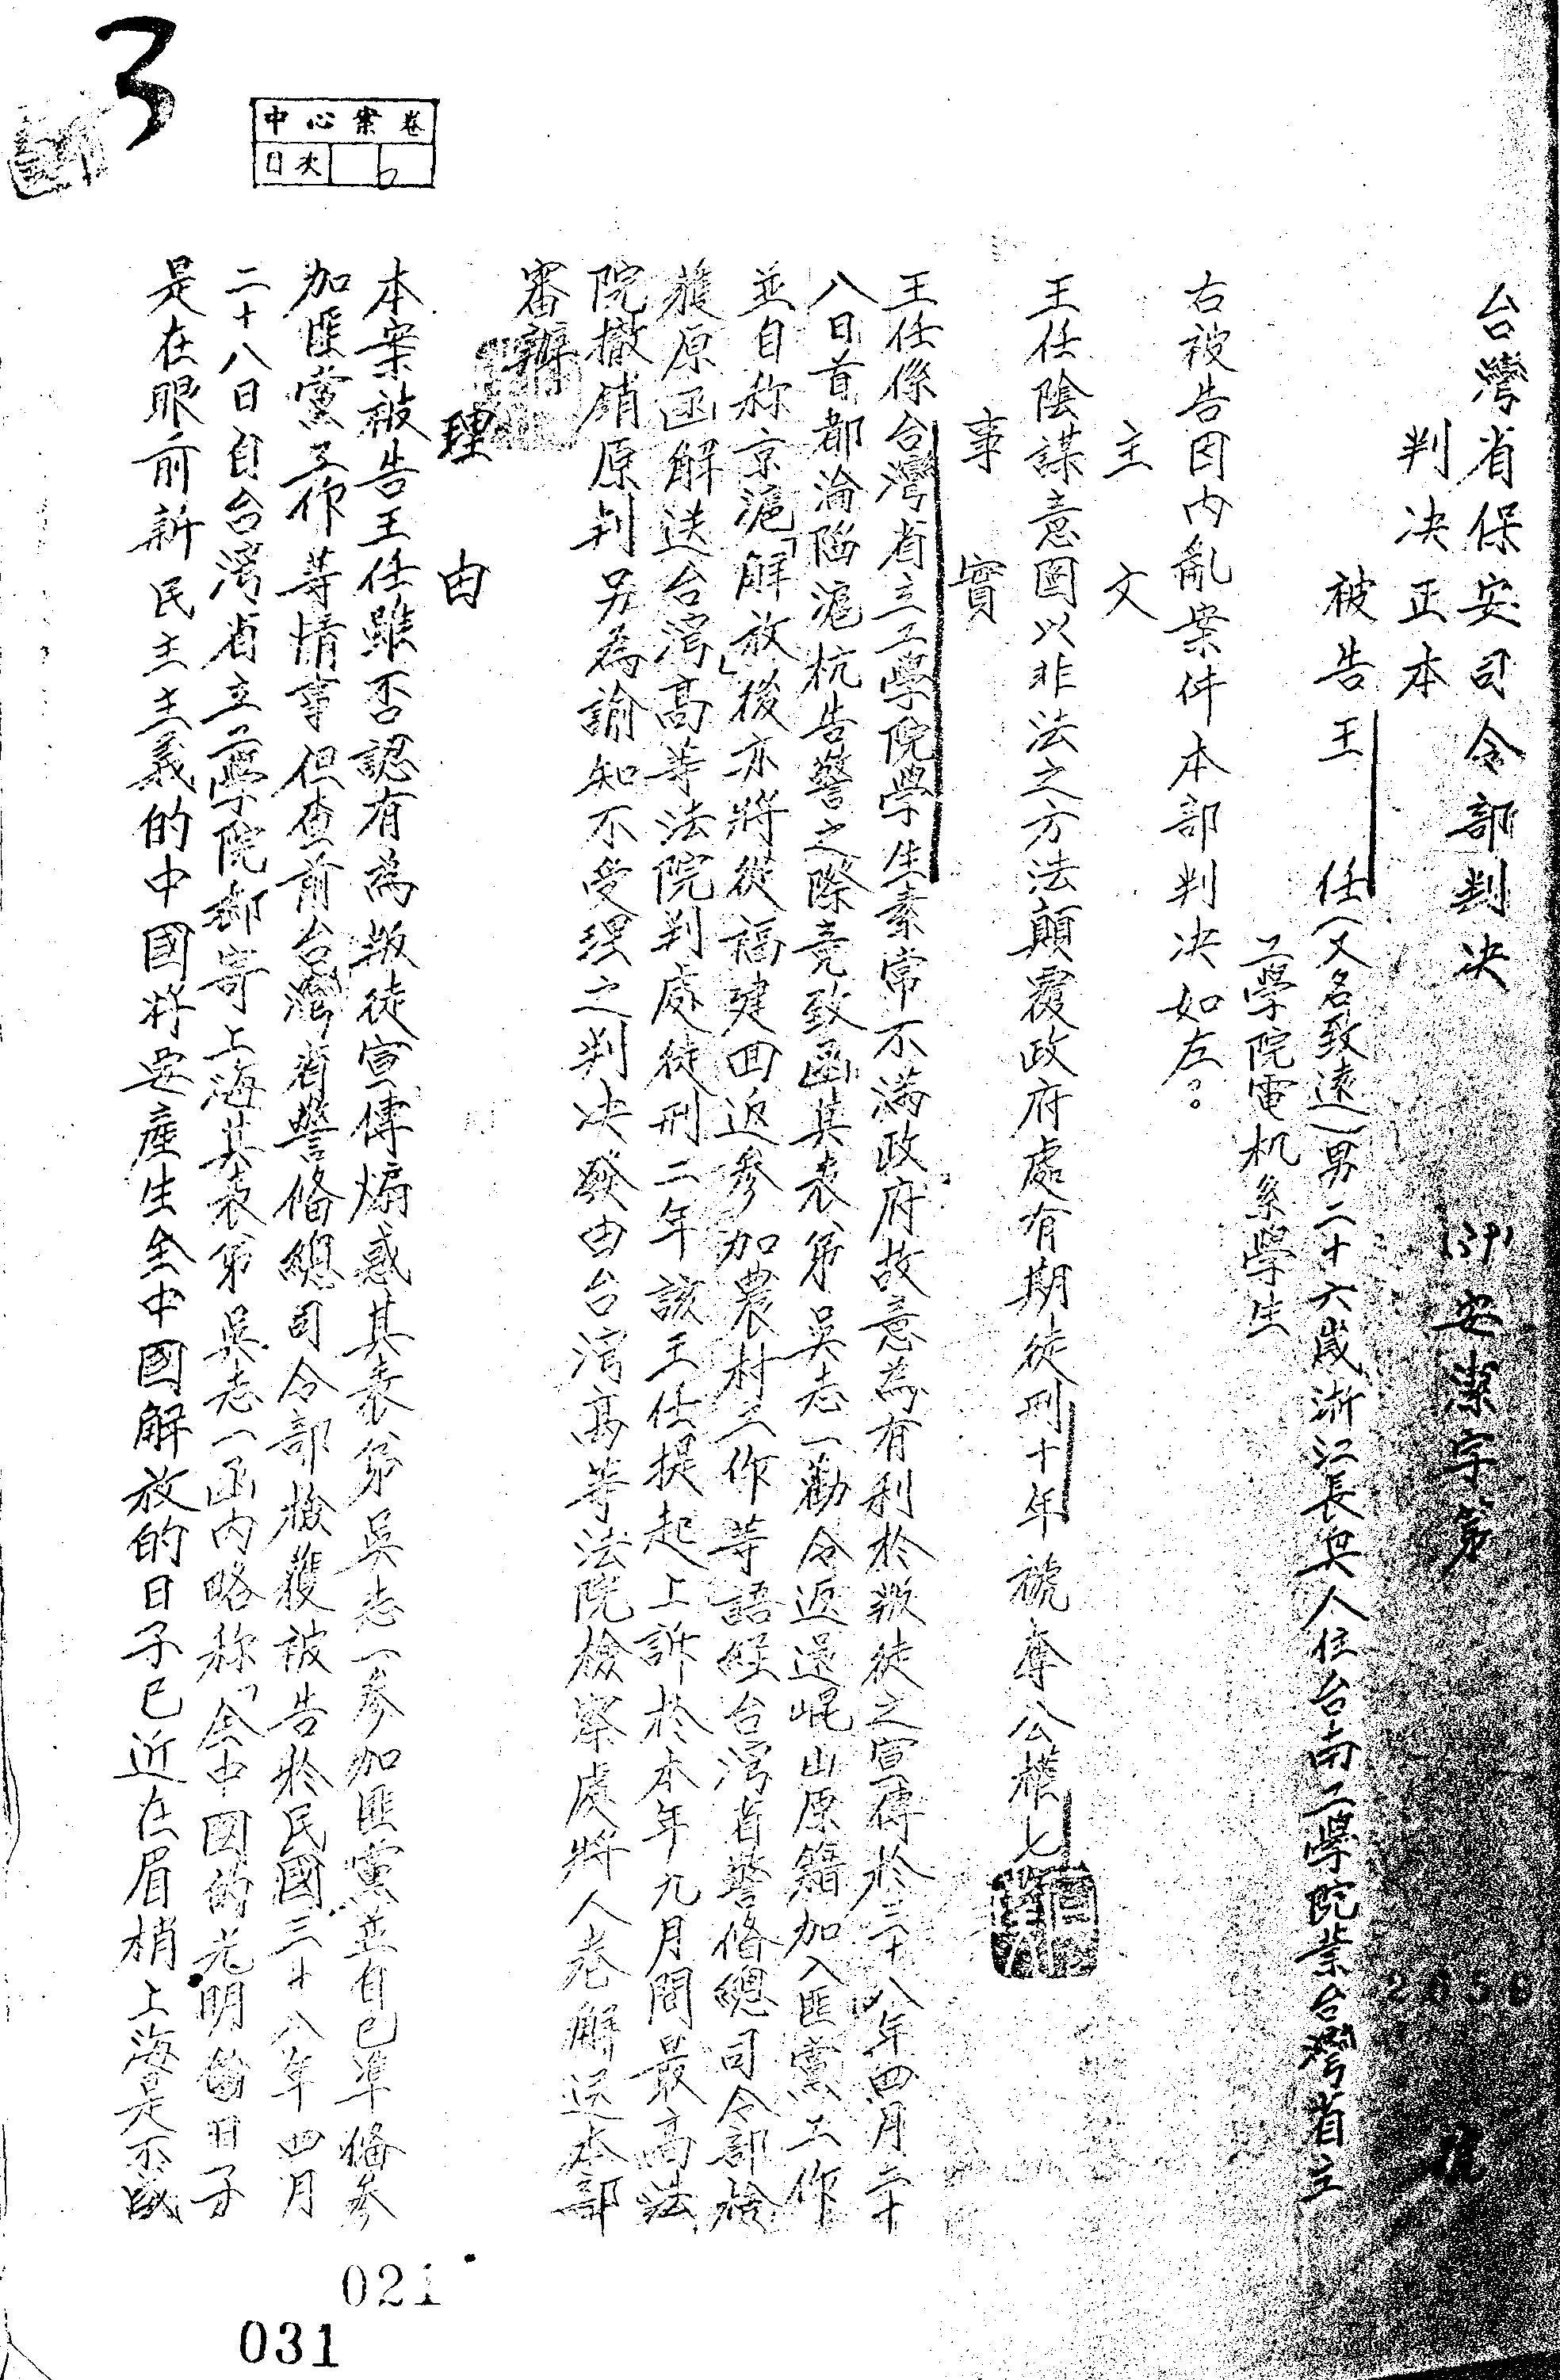 3
中心案卷
目次
6
台灣省保安司令部判决
安潔字第2056號
判决正本
被告王任（又名致遠）男二十六歲浙江長興人住台南工學院業台灣省立
工學院電机系學生
右被告因内亂案件本部判决如左：
主文
王任陰謀意圖以非法之方法顛覆政府處有期徒刑十年褫奪公權七
事實
王任係台灣省立工學院學生素常不滿政府故意為有利於叛徒之宣傳於三十八年四月二十
八日首都淪陷滬杭告警之際竟致函其表弟吳志一勸令返還崐山原籍加入匪黨工作
並自称京滬「解放」後亦將從福建回返参加農村工作等語経台湾省警俻總司令部檢
獲原函解送台湾高等法院判處徒刑二年該王任提起上訴於本年九月間最高法
院撤銷原判另為諭知不受理之判决發由台湾高等法院檢察處將人卷解送本部
審辦
理由
本案被告王任雖否認有為叛徒宣傳煽惑其表弟吳志一参加匪黨並自己準俻参
加匪黨工作等情事但查前台灣省警俻總司令部檢獲被告於民國三十八年四月
二十八日自台湾省立工學院郵寄上海其表弟吳志一函内略称「全中國的光明的日子
是在眼前新民主主義的中國将要產生全中國解放的日子已近在眉梢上海是不戰
021
031